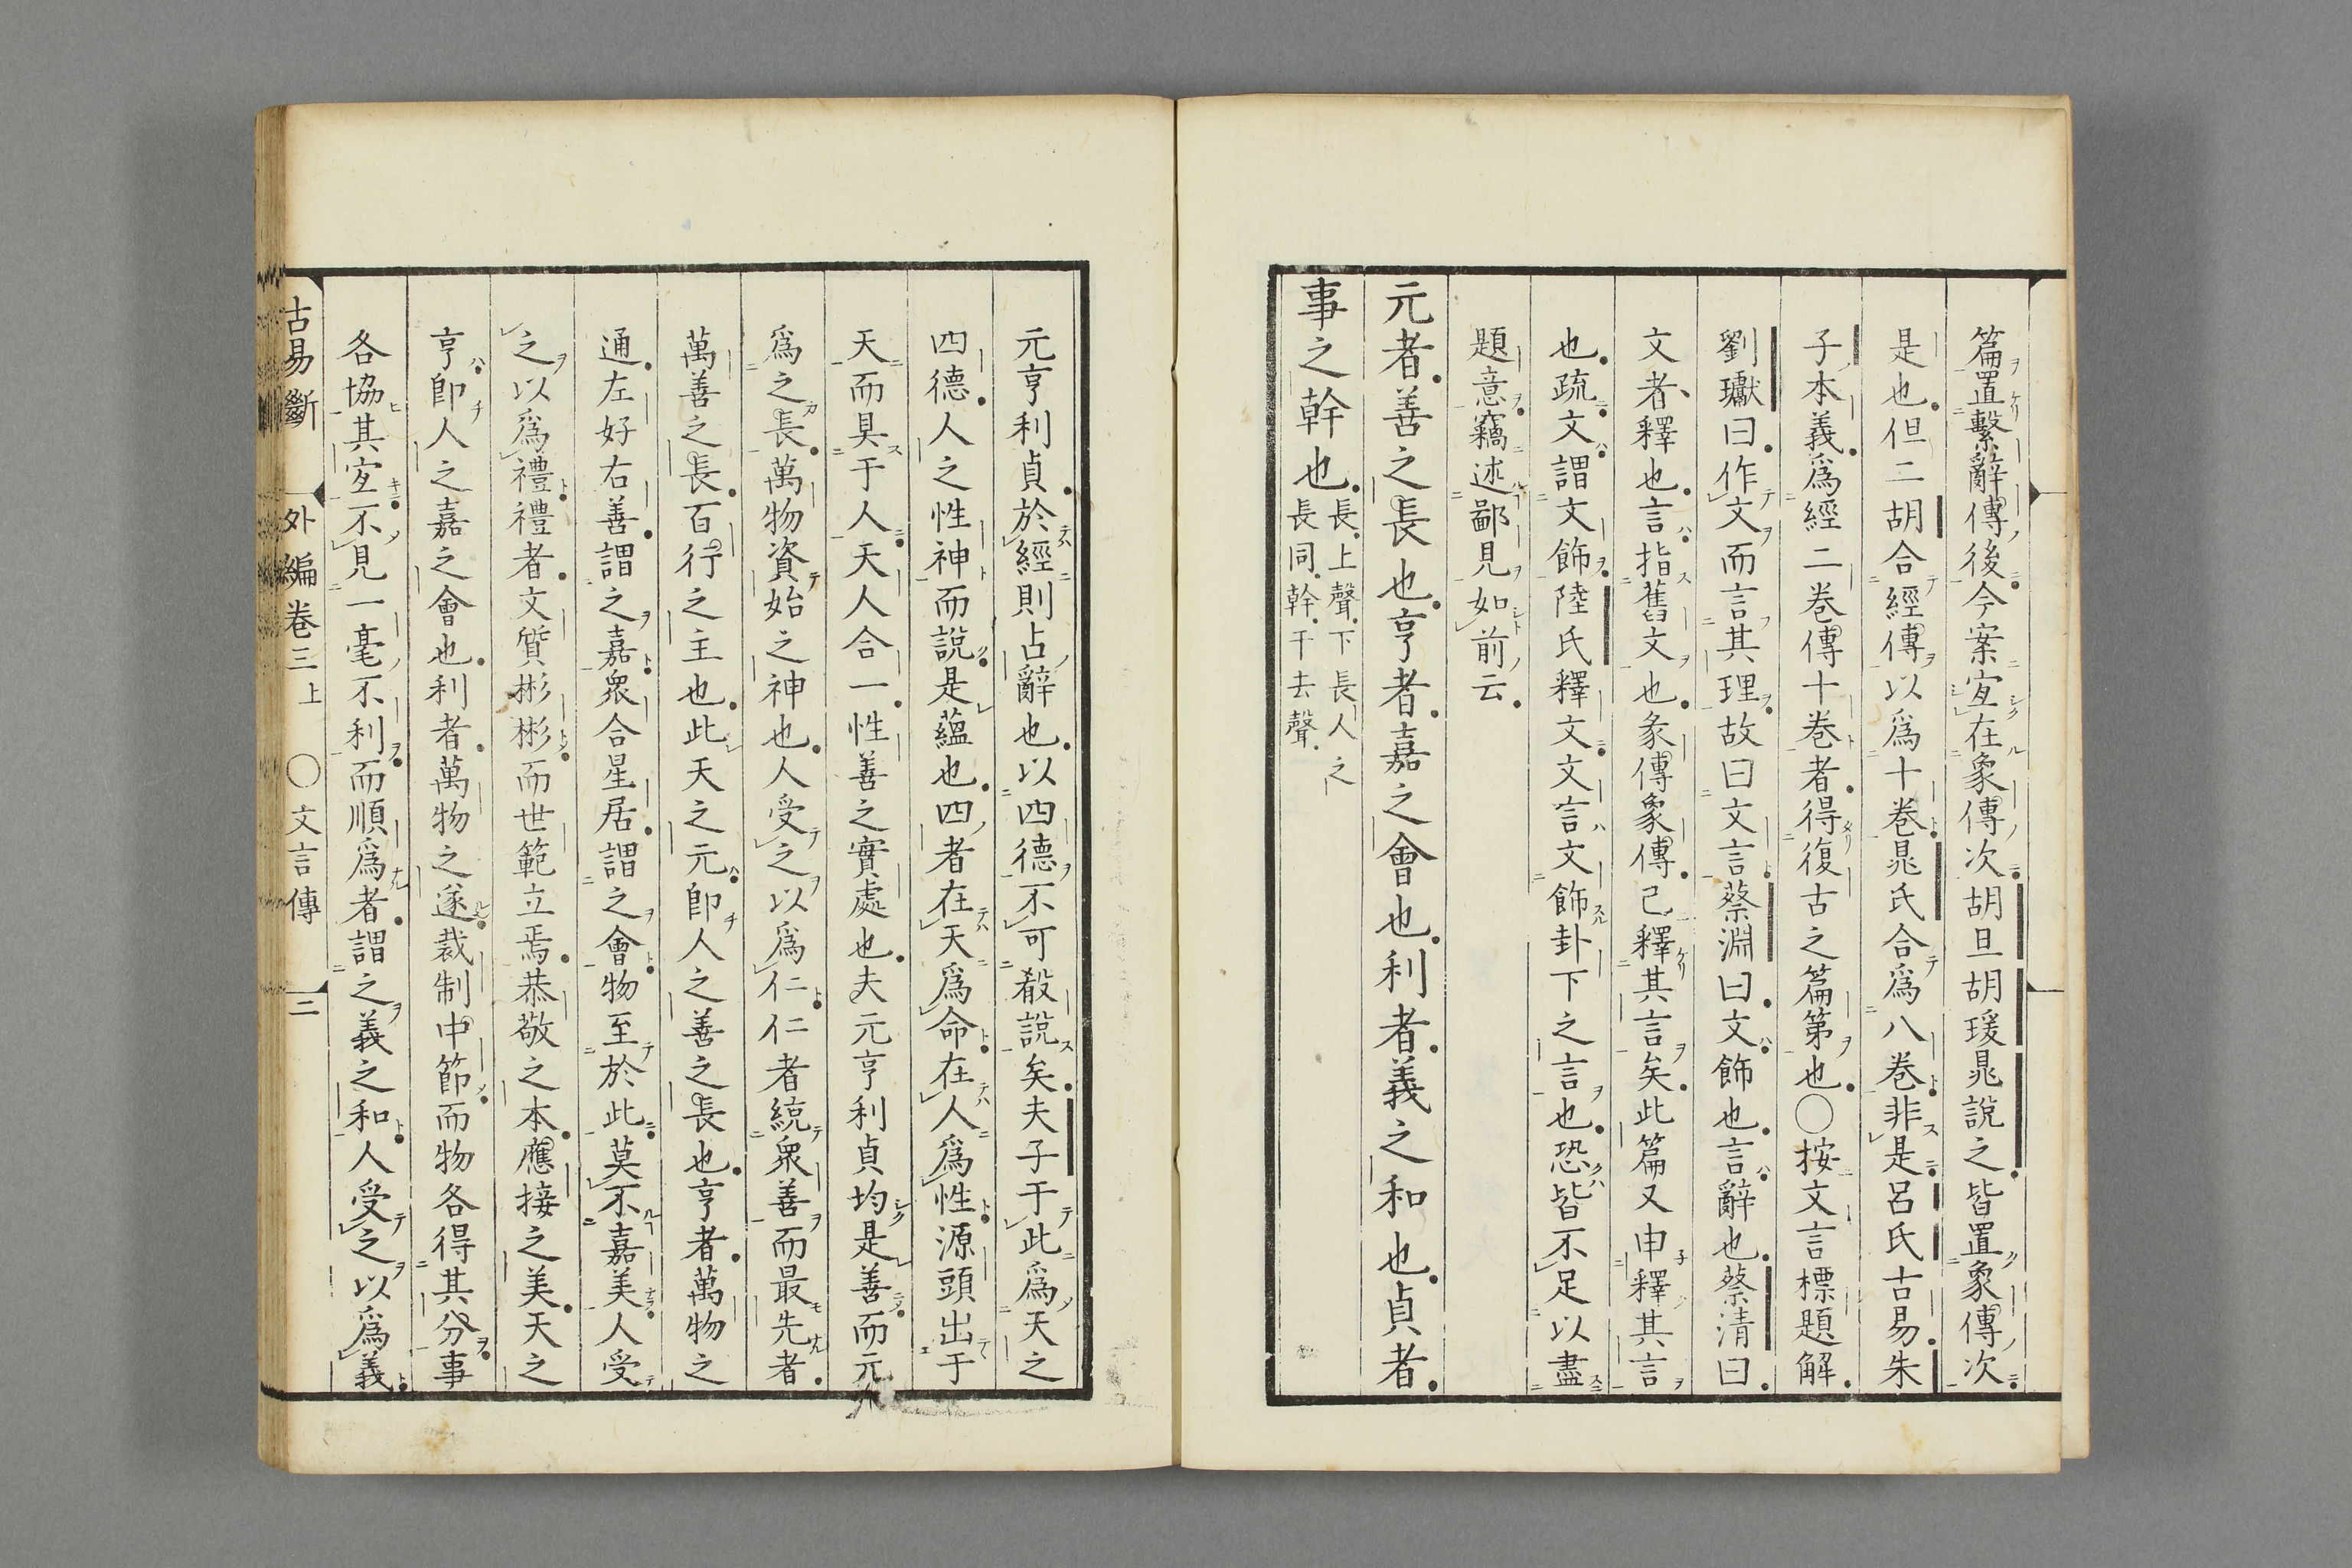 篇置繫辭傳後今案宜在象傳次胡旦胡瑗晁說之皆置象傳次
是也但二胡合經傳以爲十卷晁氏合爲八卷非是呂氏古易朱
子本義爲經二卷傳十卷者得復古之篇第也○按文言標題解
劉瓛曰作文而言其理故曰文言蔡淵曰文飾也言辭也蔡清曰
文者釋也言指舊文也彖傳象傳已釋其言矣此篇又申釋其言
也疏文謂文飾陸氏釋文文言文飾卦下之言也恐皆不足以盡
題意竊述鄙見如前云
元者善之長也亨者嘉之會也利者義之和也貞者
事之幹也長上聲下長人之
長同幹干去聲
元亨利貞於經則占辭也以四德不可殽說矣夫子于此爲天之
四德人之性神而說是蘊也四者在天爲命在人爲性源頭出于
天而具于人天人合一性善之實處也夫元亨利貞均是善而元
爲之長萬物資始之神也人受之以爲仁仁者統衆善而最先者
萬善之長百行之主也此天之元卽人之善之長也亨者萬物之
通左好右善謂之嘉衆合星居謂之會物至於此莫不嘉美人受
之以爲禮禮者文質彬彬而世範立焉恭敬之本應接之美天之
亨卽人之嘉之會也利者萬物之遂裁制中節而物各得其分事
各協其宜不見一毫不利而順爲者謂之義之和人受之以爲義
古易斷 外編卷三上 ○文言傳 二